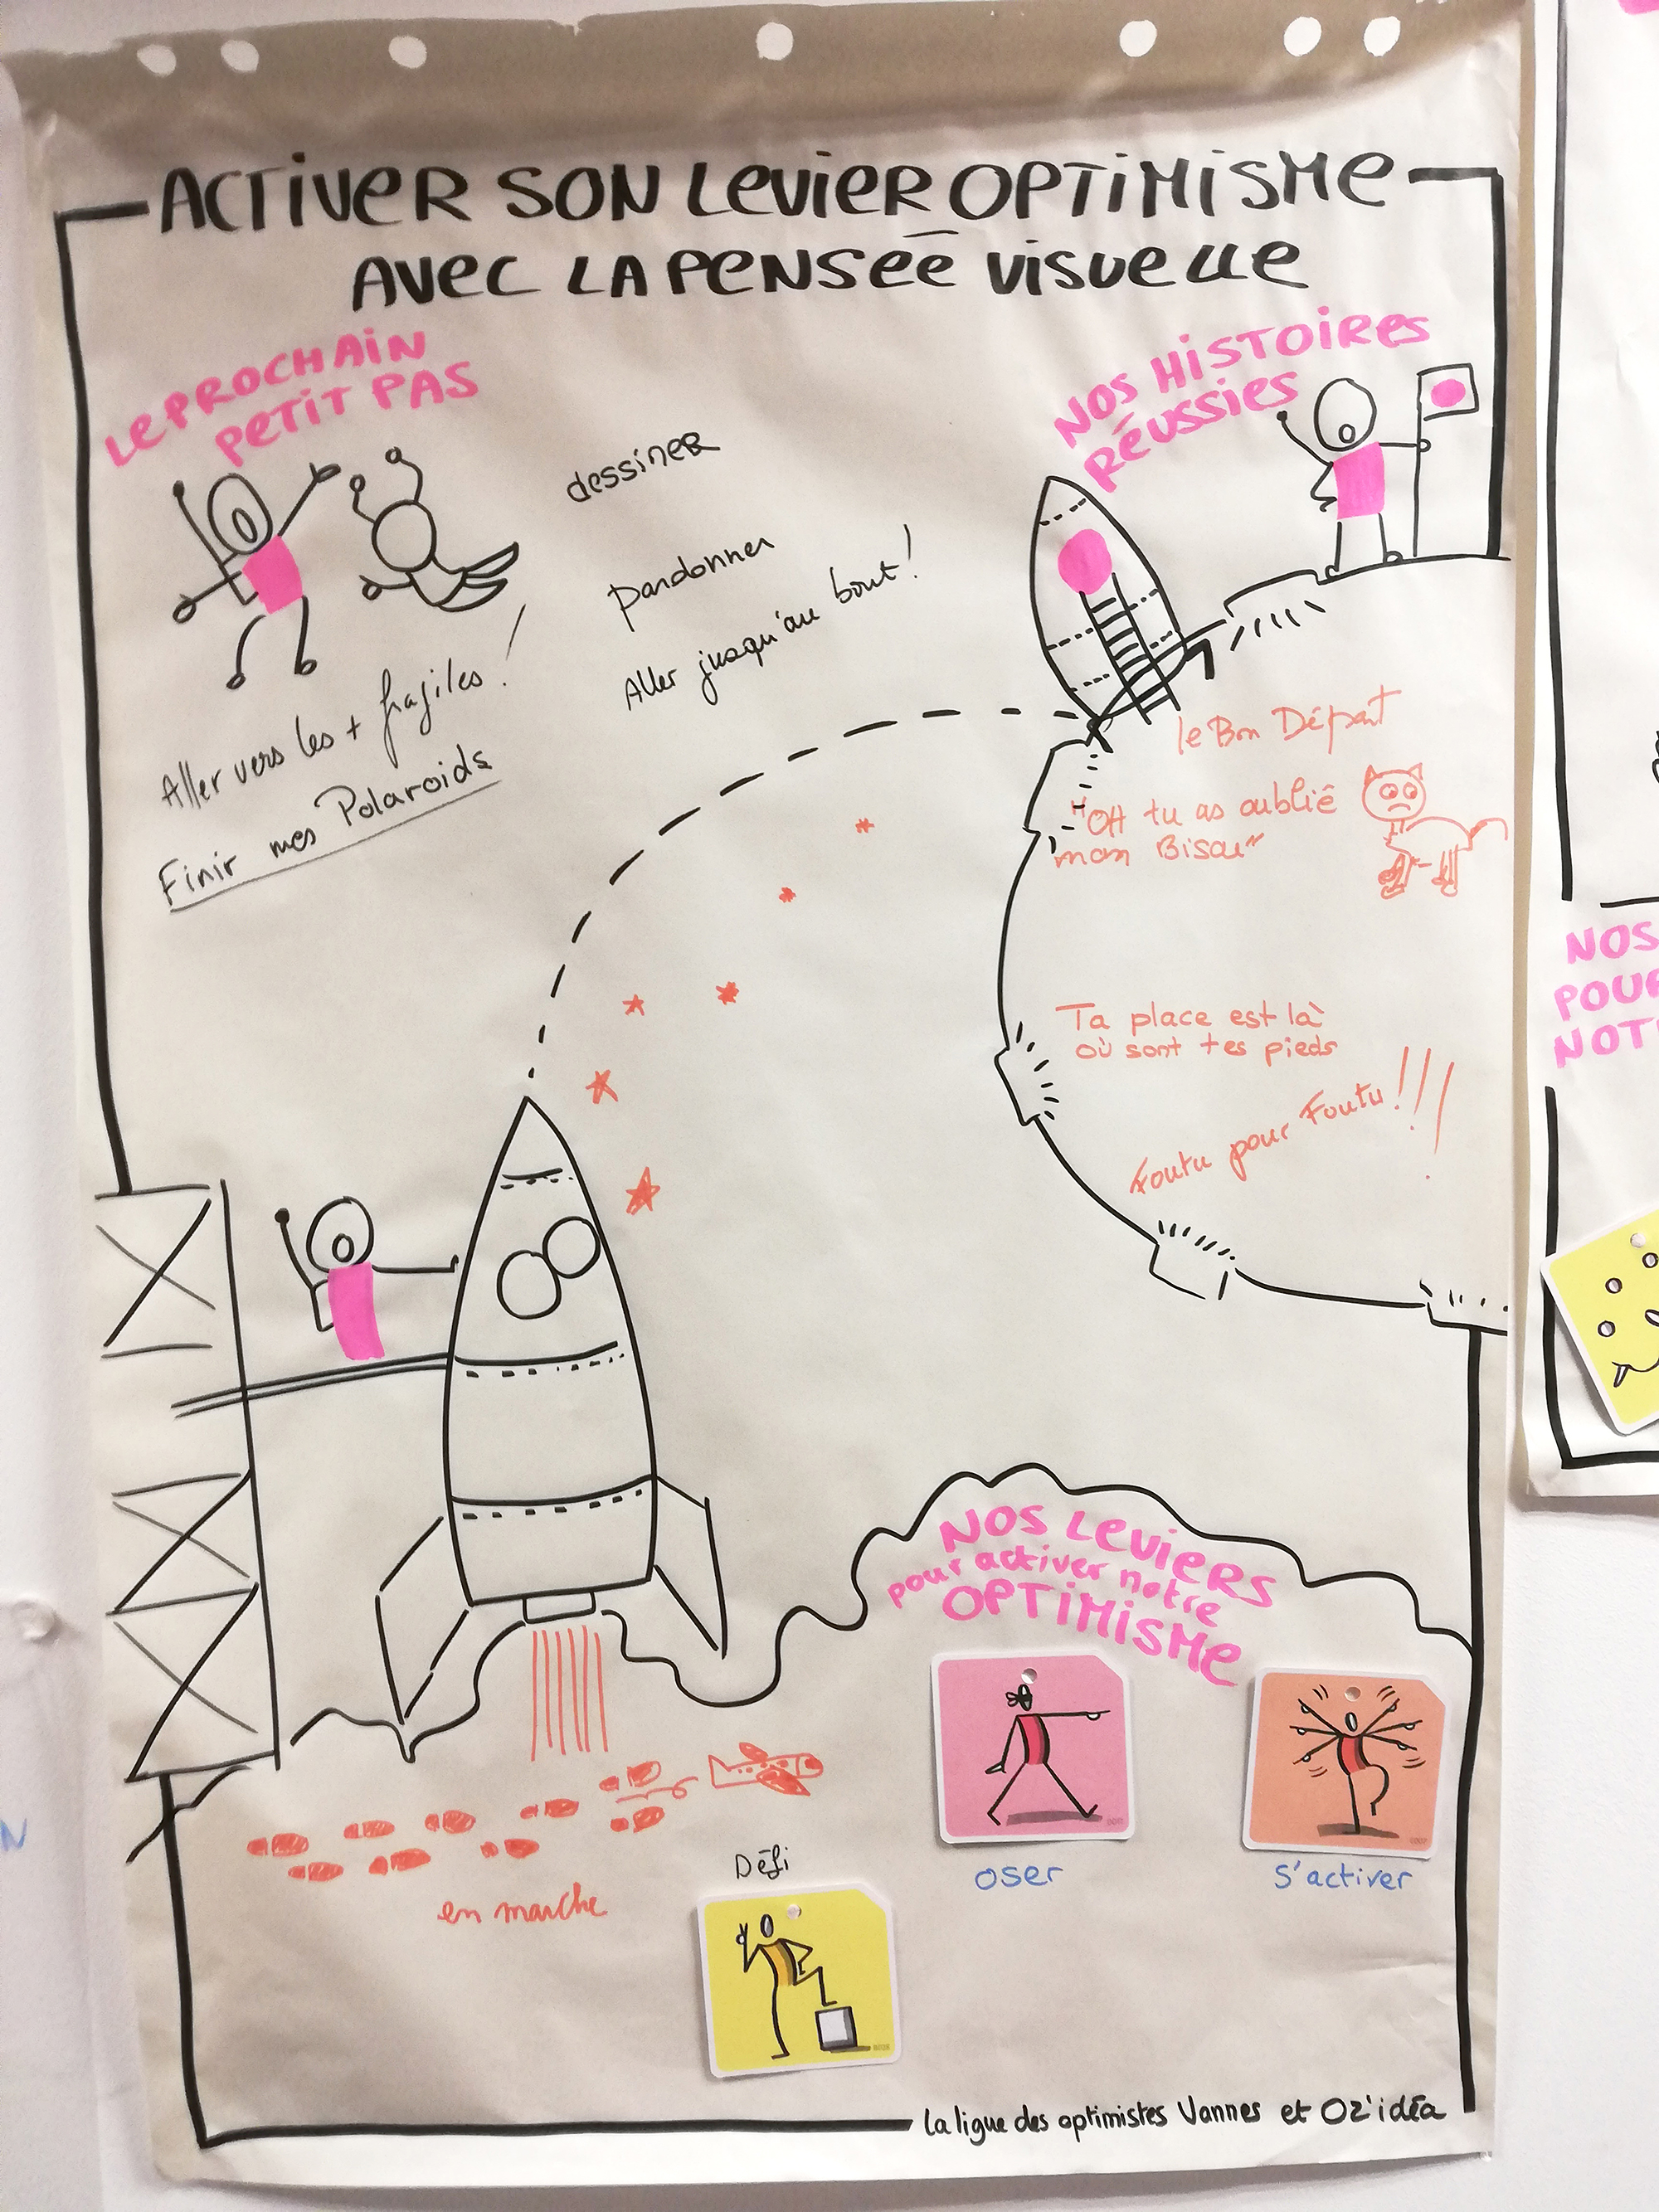 ACTIVER SON LEVIER OPTIMISME
AVEC LA PENSÉE VISUELLE
LE PROCHAIN
PETIT PAS
NOS HISTOIRES
RÉUSSIES
dessiner
pardonner
Aller jusqu'au bout !
Aller vers les + fragiles !
Finir mes Polaroids
le Bon Départ
"OH tu as oublié
mon Bisou"
Ta place est là
où sont tes pieds
Foutu pour Foutu !!!
NOS LEVIERS
pour activer notre
OPTIMISME
oser
S'activer
Défi
en marche
la ligue des optimistes Vannes et Oz'idéa
NOS
POUR
NOT
N